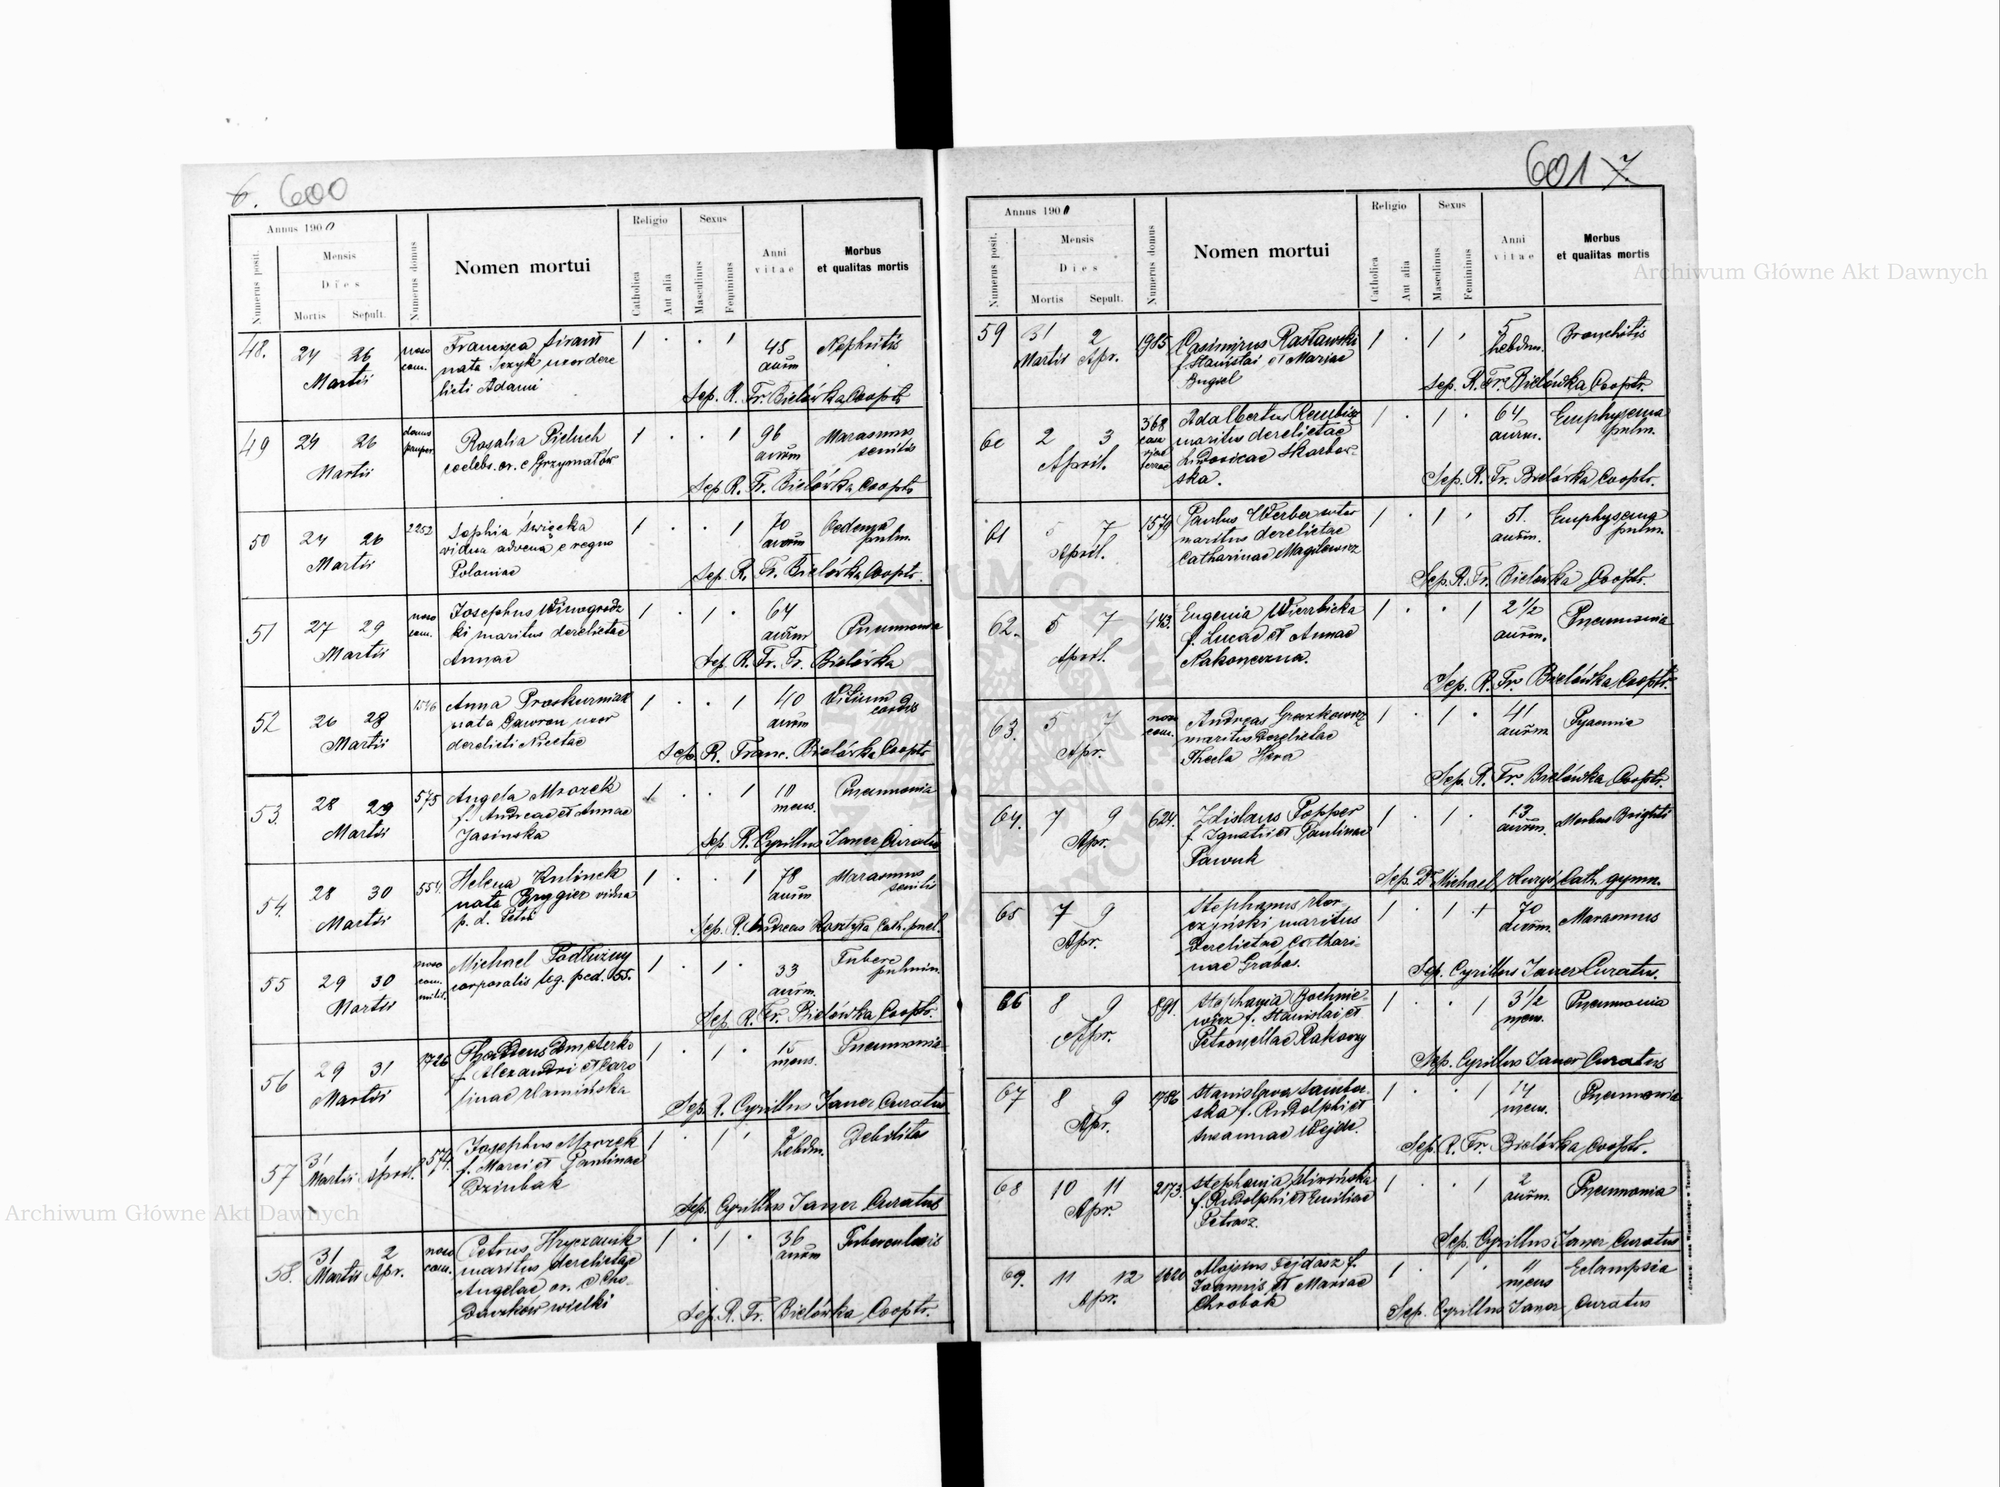 6. 600
Annus 1900
Numerus posit.
Mensis
Dies
Mortis Sepult.
Numerus domus
Nomen mortui
Religio
Catholica
Aut alia
Sexus
Masculinus
Femininus
Anni
vitae
Morbus
et qualitas mortis
48. 24 26 Martii
noso
com.
Francisca
nata uxor dere
licti Adami
1 . . 1
45
annm
Nephritis
Sep. R. Fr. Bielówka Cooptr
49 24 26 Martii
domus
pauper.
Rosalia Pieluch
coelebs. or. e Grzymałów
1 . . 1
96
annm
Marasmus
senilis
Sep. R. Fr. Bielówka Cooptr
50 24 26 Martii
2252
Sophia Święcka
vidua advena e regno
Poloniae
1 . . 1
70
annm
Oedema
pulm.
Sep. R. Fr. Bielówka Cooptr.
51 27 29 Martii
noso
com.
Josephus Winogrodz
ki maritus derelictae
Annae
1 . 1 .
64
annm
Pneumonia
Sep. R. Fr. Fr. Bielówka
52 26 28 Martii
1546
Anna Proskurniak
nata Gawron uxor
derelicti Nicetae
1 . . 1
40
annm
Vitium
cordis
Sep. R. Franc. Bielówka Cooptr
53. 28 29 Martii
575
Angela Mrozek
f. Andreae et Annae
Jasinska
1 . . 1
10
mens.
Pneumonia
Sep. R. Cyrillus Janer Curatus
54. 28 30 Martii
554.
Helena Kulinek
nata Brygier vidua
p. d. Petri
1 . . 1
78
annm
Marasmus
senilis
Sep. R. Andreas Kosztyła Cath. puel.
55 29 30 Martii
noso
com.
milit.
Michael Podłużny
corporalis leg. ped. 55.
1 . 1 .
33
annm.
Tuberc
pulmm.
Sep. R. Fr. Bielówka Cooptr.
56 29 31 Martii
1726
Thaddeus Dmeterko
f. Alexandri et Caro
linae Kamińska
1 . 1 .
15
mens.
Pneumonia
Sep. R. Cyrillus Janer Curatus
57 31 Martii 1 April.
574.
Josephus Mrozek
f. Marci et Paulinae
Dziubak
1 . 1 .
2
hebdm.
Debilitas
Sep. Cyrillus Janer Curatus
58. 31 Martii 2 Apr.
noso
com.
Petrus Hryczauk
maritus derelictae
Angelae or. e Cho-
daczków wielki
1 . 1 .
36
annm
Tuberculosis
Sep. R. Fr. Bielówka Cooptr.
601 7.
Annus 1900
Numerus posit.
Mensis
Dies
Mortis Sepult.
Numerus domus
Nomen mortui
Religio
Catholica
Aut alia
Sexus
Masculinus
Femininus
Anni
vitae
Morbus
et qualitas mortis
59 31 Martii 2 Apr.
1985
Casimirus Rasławski
f. Stanislai et Mariae
Bugiel
1 . 1 .
5
hebdm.
Bronchitis
Sep. R. Fr. Bielówka Cooptr.
60 2 3 April.
368
Adalbertus Rembisz
maritus derelictae
Ludovicae Skarbow-
ska.
1 . 1 .
64
annm.
Emphysema
pulm.
Sep. R. Fr. Bielówka Cooptr.
61 5 7 April.
1579
Paulus Werber sutor
maritus derelictae
Catharinae Magilewicz
1 . 1 .
51.
annm.
Emphysema
pulm.
Sep. R. Fr. Bielówka Cooptr.
62. 5 7 April.
443.
Eugenia Wierzbicka
f. Lucae et Annae
Nakoneczna.
1 . . 1
2 1/2
annm.
Pneumonia
Sep. R. Fr. Bielówka Cooptr.
63. 5 7 Apr.
noso
com.
Andreas Greczkowicz
maritus derelictae
Thecla Hera
1 . 1 .
41
annm
Pyaemia
Sep. R. Fr. Bielówka Cooptr.
64. 7 9 Apr.
624.
Zdislaus Popper
f. Ignatii et Paulinae
Pawuk
1 . 1 .
13
annm.
Morbus Brighti
Sep. Dr Michael Kuryś Cath. gymn.
65 7 9 Apr.
Stephanus Kor-
czyński maritus
derelictae Cathari-
nae Grabas.
1 . 1 +
70
annm.
Marasmus
Sep. Cyrillus Janer Curatus.
66 8 9 Apr.
891.
Stephania Bochnie-
wicz f. Stanislai et
Petronellae Rakoczy
1 . . 1
3 1/2
mens.
Pneumonia
Sep. Cyrillus Janer Curatus
67 8 9 Apr.
1786
Stanislava Sambor
ska f. Rudolphi et
Susannae Wejde.
1 . . 1
14
mens.
Pneumonia
Sep. R. Fr. Bielówka, Cooptr.
68 10 11 Apr.
2073.
Stephania Śliwińska
f. Rudolphi et Emiliae
Petrasz.
1 . . 1
2
annm.
Pneumonia
Sep. Cyrillus Janer Curatus
69. 11 12 Apr.
1620
Alojsius Fejdasz f.
Joannis et Mariae
Chrobak
1 . 1 .
11
mens
Eclampsia
Sep. Cyrillus Janer, Curatus
Archiwum Główne Akt Dawnych
Archiwum Główne Akt Dawnych